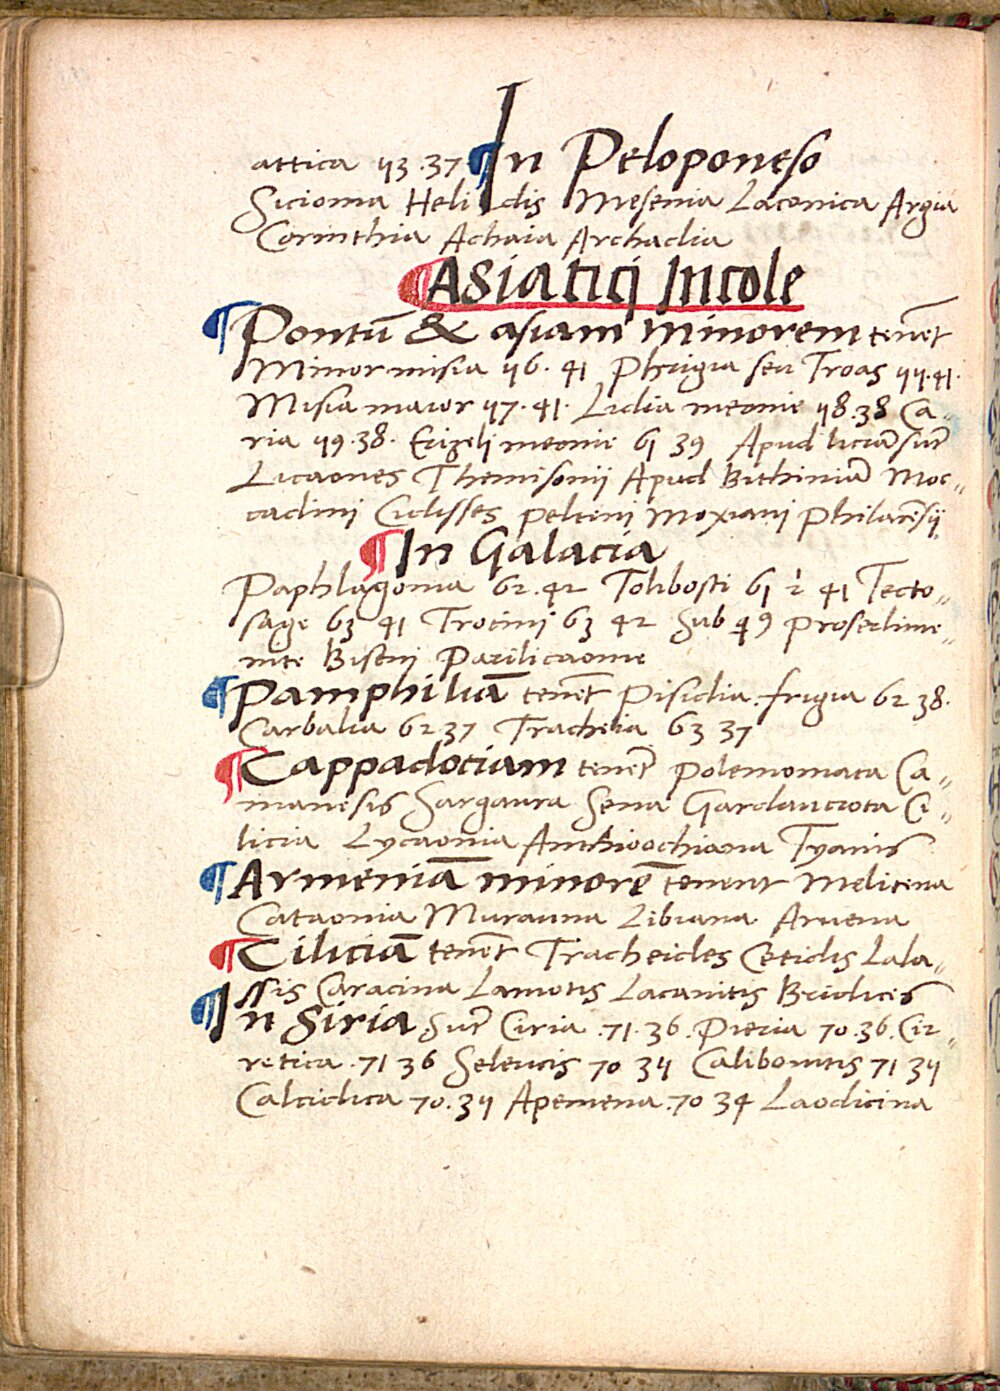 attica 43.37 ¶In Peloponeso
Sicionia Helidis Mesenia Laconica Argia
Corinthia Achaia Archadia
¶Asiatici Incole
¶Pontū & asiam minorem tenēt
Minor misia 46. 41 Phrigia seu Troas 44.41.
Misia maior 47.41. Lidia meonie 48.38 Ca„
ria 49.38. Erizeli meonie 61 39 Apud liciā sūt
Licaones Themisonij Apud Bithiniā Moc„
cadini Cidisses peltini moxiani Philacēsij
¶In Galacia
Paphlagonia 62.42 Tolibosti 61 2 41 Tecto„
sage 63 41 Trocini 63 42 Sub Proselime„
nite Biseni
¶Pamphiliā tenēt Pisidia frigia 62 38.
Carbalia 62 37 Trachelia 63 37
¶Cappadociam tenēt Polemoniaca Ca„
manesis Sargaura Sena Gardaucrota Ci„
licia Lycaonia Anthioochiana Tyanis
¶Armeniā minorē tenent Melitena
Cataonia Muraina Libiana Aruena
¶Ciliciā tenēt Tracheides Cetidis Lala„
ssis Caracina Lamotis Lacanitis Briolices
¶In Siria sūt Ciria .71.36. Pieria 70.36. Cir„
retica .71 36 Seleucis 70 34 Calibonitis 71 34
Calcidica 70.34 Apemena .70 34 Laodicina